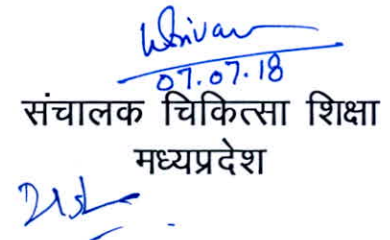 07.07.18
संचालक चिकित्सा शिक्षा
मध्यप्रदेश